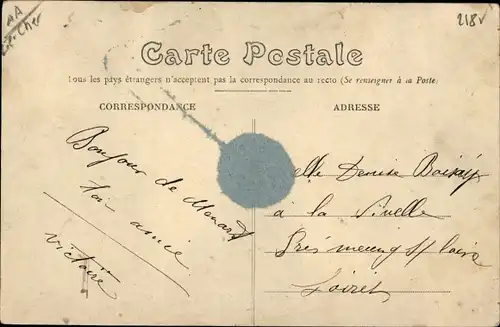 218
Carte Postale
Tous les pays étrangers n'acceptent pas la correspondance au recto (Se renseigner à la Poste)
CORRESPONDANCE
ADRESSE
Bonjour de
ton amie
Victoire
elle Denise
à la Nivelle
Près meung s/ loire
Loiret